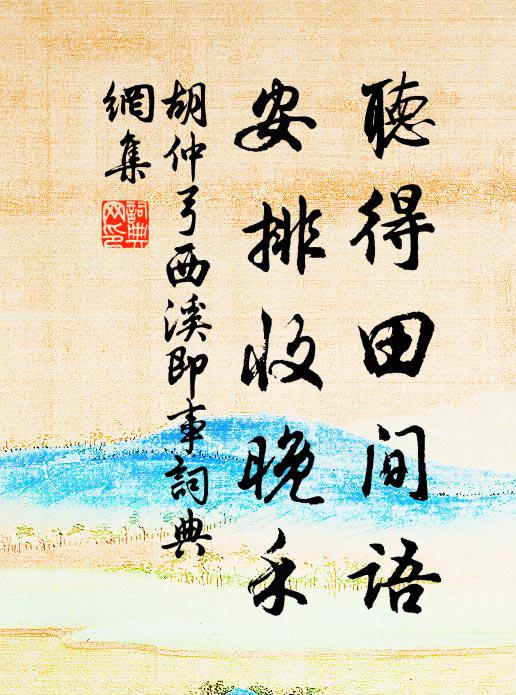 聽得田間語
安排收晚禾
胡仲弓西溪即事詞典
網集
詞典
网印